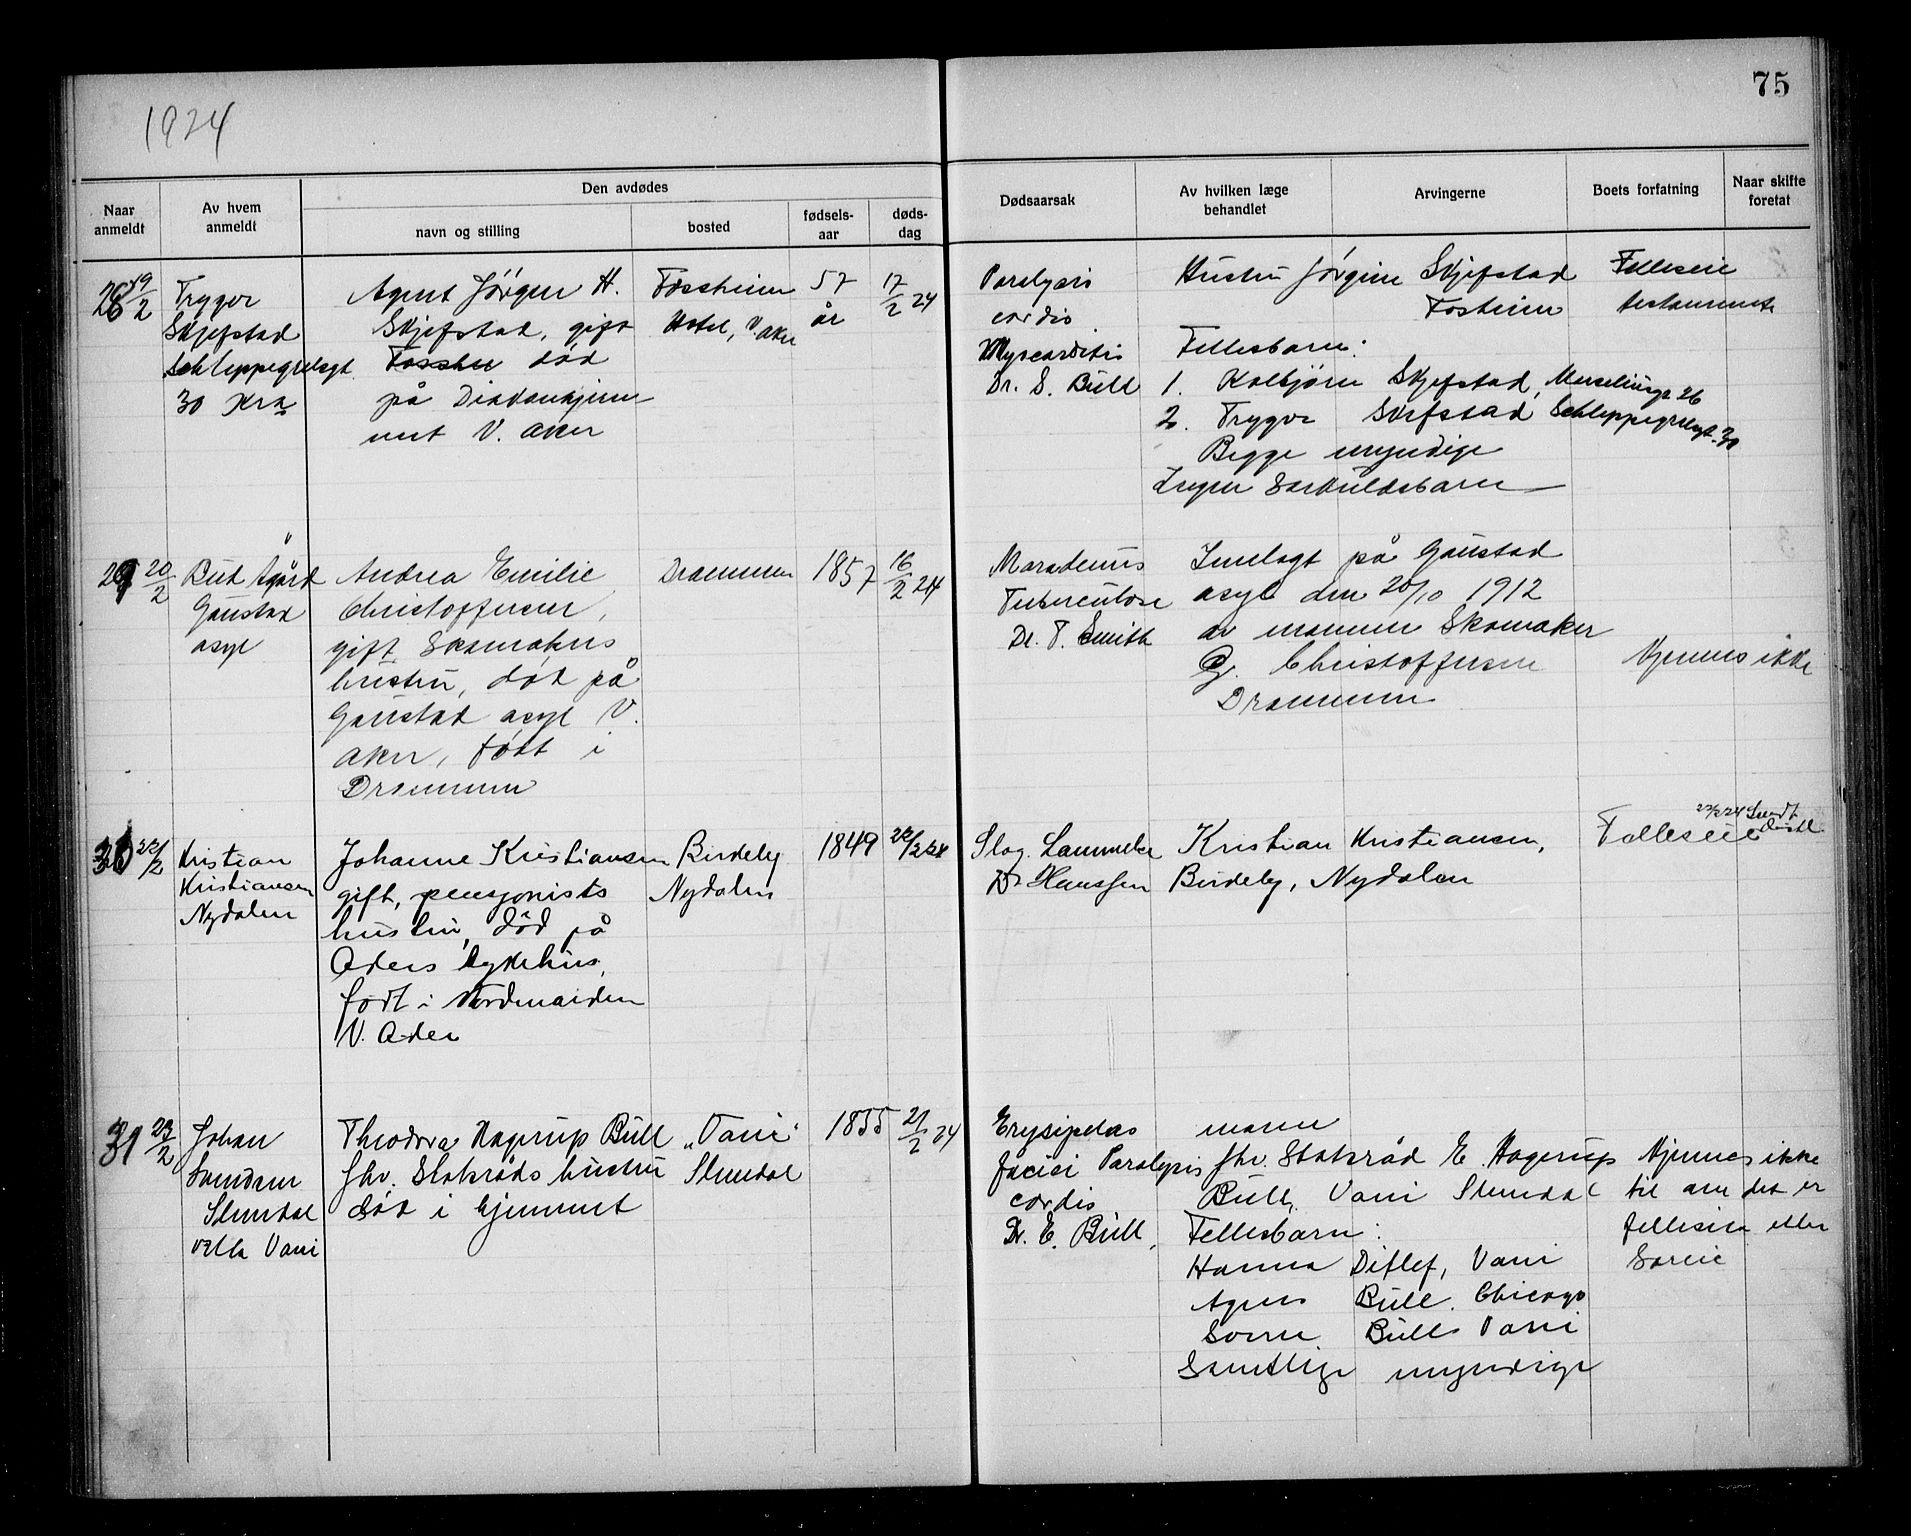 1924
75
Den avdødes
Naar anmeldt
Av hvem anmeldt
navn og stilling
bosted
fødsels-aar
døds-dag
Dødsaarsak
Av hvilken læge behandlet
Arvingerne
Boets forfatning
Naar skifte foretat
28 19/2
Trygve
Skjefstad
Schleppegrelsgt.
30 Kra
Agent Jörgen H.
Skjefstad, gift
død
på Diakonhjem-
met V. Aker
Fossheim
Hotel, V. Aker
57
år
17/2 24
Paralysis
cordis
Myocarditis
Dr. S. Bull
Hustru Jørgine Skjefstad
Fosheim
Fellesbarn:
1. Kolbjørn Skjefstad, 26
2. Trygve Skjefstad Schleppegrelsgt. 30
Begge myndige
Ingen Særkuldsbarn
Felleseie
testamente
29 20/2
Bud Agård
Gaustad
asyl
Andrea Emilie
Christoffersen,
gift Skomakers
hustru, død på
Gaustad asyl V.
Aker, født i
Drammen
Drammen
1857
16/2 24
Marasmus
Tuberculose
Dr. T. Smith
Innlagt på Gaustad
asyl den 20/10 1912
av mannen Skomaker
Christoffersen
Drammen
Kjennes ikke
30 22/2
Kristian
Kristiansen
Nydalen
Johanne Kristiansen
gift, pensjonists
hustru, død på
Akers sykehus,
født i Nordmarken
V. Aker
Birdeby
Nydalen
1849
Slag. Lammelse
Dr Hanssen
Kristian Kristiansen,
Birdeby, Nydalen
Felleseie
31 23/2
Johan
Slemdal
villa Vani
Theodora Hagerup Bull
fhv. Statsråds hustru
død i hjemmet
"Vani"
Slemdal
1855
21/2 24
Erysipelas
faciei Paralysis
cordis
Dr. E. Bull,
mann
fhv. Statsråd E. Hagerup
Bull, Vani Slemdal
Fellesbarn:
Hanna Ditlef, Vani
Agnes Bull. Chicago
Bull Vani
Samtlige myndige
Kjennes ikke
til om det er
felleseie eller
særeie